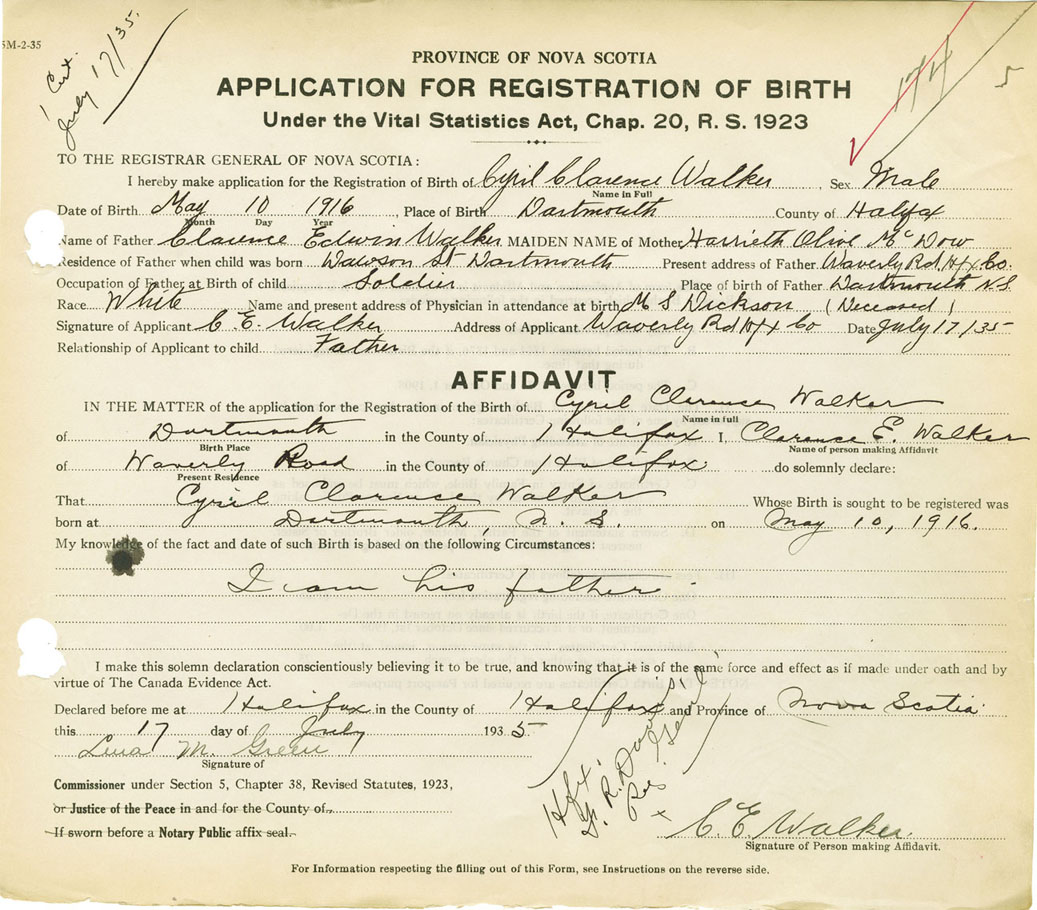 5M-2-35
1 Cert.
July 17/35.
174
5
PROVINCE OF NOVA SCOTIA
APPLICATION FOR REGISTRATION OF BIRTH
Under the Vital Statistics Act, Chap. 20, R. S. 1923
TO THE REGISTRAR GENERAL OF NOVA SCOTIA:
I hereby make application for the Registration of Birth of Cyril Clarence Walker, Sex Male
Name in Full
Date of Birth May 10 1916, Place of Birth Dartmouth County of Halifax
Month Day Year
Name of Father Clarence Edwin Walker MAIDEN NAME of Mother Harrieth Olive McDow
Residence of Father when child was born Dawson St Dartmouth Present address of Father Waverly Rd Hfx Co.
Occupation of Father at Birth of child Soldier Place of birth of Father Dartmouth N.S
Race White Name and present address of Physician in attendance at birth M S Dickson (Deceased)
Signature of Applicant C. E. Walker Address of Applicant Waverly Rd Hfx Co Date July 17/35
Relationship of Applicant to child Father
AFFIDAVIT
IN THE MATTER of the application for the Registration of the Birth of Cyril Clarence Walker
Name in full
of Dartmouth in the County of Halifax I, Clarence E. Walker
Birth Place Name of person making Affidavit
of Waverly Road in the County of Halifax do solemnly declare:
Present Residence
That Cyril Clarence Walker Whose Birth is sought to be registered was
born at Dartmouth, N. S. on May 10, 1916.
My knowledge of the fact and date of such Birth is based on the following Circumstances:
I am his father.
I make this solemn declaration conscientiously believing it to be true, and knowing that it is of the same force and effect as if made under oath and by
virtue of The Canada Evidence Act.
Declared before me at Halifax in the County of Halifax and Province of Nova Scotia
this 17 day of July 1935.
Lena M. Green
Signature of
Commissioner under Section 5, Chapter 38, Revised Statutes, 1923,
or Justice of the Peace in and for the County of
If sworn before a Notary Public affix seal.
Hfx.
R. Davis
x C. E. Walker
Signature of Person making Affidavit.
For Information respecting the filling out of this Form, see Instructions on the reverse side.